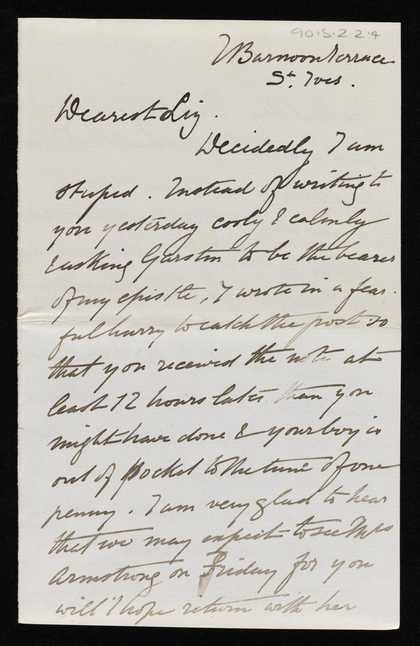 90.5.2 2.4
7 Barnoon Terrace
St. Ives.
Dearest Liz.
Decidedly I am
stupid. Instead of writing to
you yesterday cooly & calmly
& asking Garstin to be the bearer
of my epistle, I wrote in a fear-
ful hurry to catch the post so
that you received the note at
least 12 hours later than you
might have done & your boy is
out of pocket to the tune of one
penny. I am very glad to hear
that we may expect to see Mrs
Armstrong on Friday for you
will I hope return with her